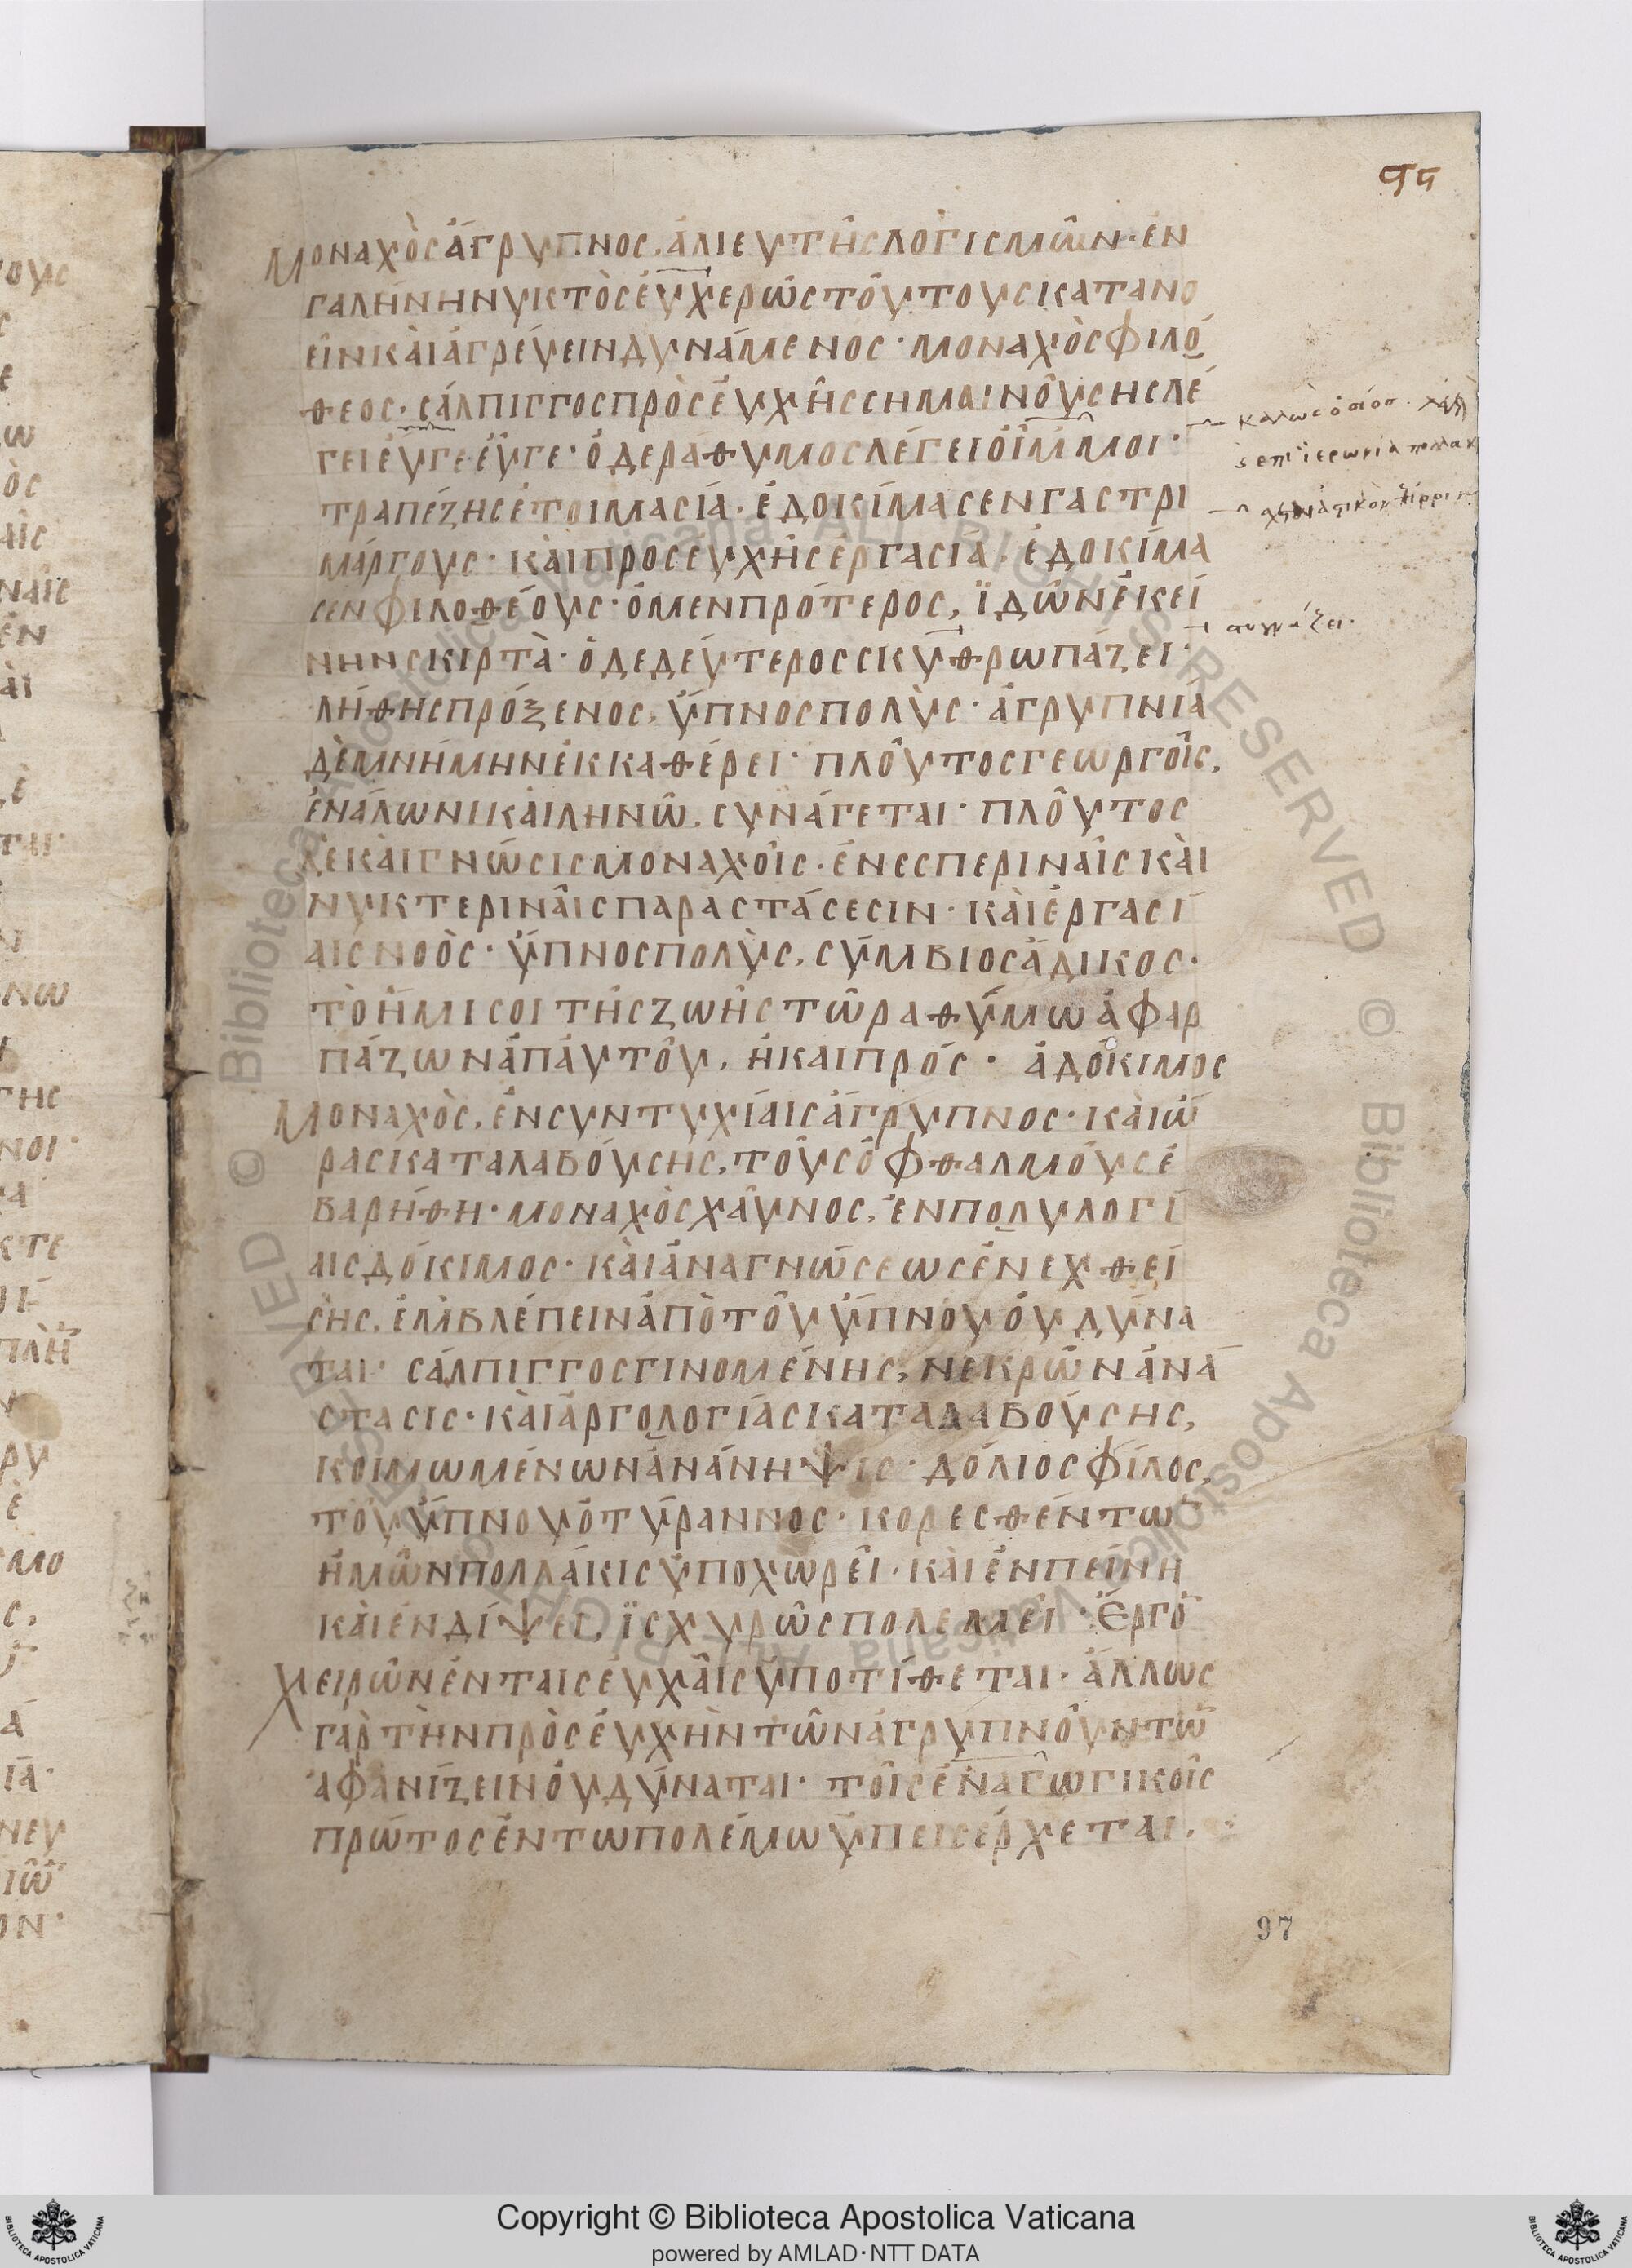 ϥϛ
Μοναχὸς ἄγρυπνος, ἁλιευτὴς λογισμῶν· ἐν
γαλήνη νυκτὸς ἐυχερῶς τόυτους κατανο
εῖν κὰι ἀγρέυειν δυνάμενος· μοναχὸς φιλό
θεος· σάλπιγγος προσευχῆς σημαινόυσης λέ
γει ἐύγε ἐύγε· ὁ δε ράθυμος λέγει ὀίμμοι·
τραπέζης ἑτοιμασία· ἐδοκίμασεν γαστρι
μάργους· κὰι προσευχῆς ἐργασία· ἐδοκίμα
σεν φιλοθέους· ὁ μεν πρότερος, ϊδὼν ἐκεί
νην σκιρτὰ· ὁ δε δέυτερος σκυθρωπάζει·
λήθης πρόξενος, ὕπνος πολὺς· ἀγρυπνία
δὲ μνήμην ἐκκαθέρει· πλῦτος γεωργοῖς,
ἐν άλωνι κὰι ληνῶ, συνάγεται· πλοῦτος
δὲ κὰι γνῶσις μοναχοῖς· ἐν εσπεριναῖς κὰι
νυκτεριναῖς παραστάσεσιν· κὰι ἐργασί
αις νοὸς· ὕπνος πολὺς, σύμβιος ἄδικος·
τὸ ἥμισοι τῆς ζωῆς τῶ ραθύμω ἀφαρ
πάζων ἀπ ἀυτοῦ, ἢ και πρός· ἀδόκιμος
Μοναχὸς, ἐν συντυχίαις ἄγρυπνος· κὰι ὥ
ρας καταλαβούσης, τοῦς ὀφθαλμοὺς ἐ
βαρήθη· μοναχὸς χαῦνος, ἐν πολυλογί
αις δόκιμος· κὰι ἀναγνώσεως ἐνεχθεί
σης, ἐμβλέπειν ἀπὸ τοῦ ὕπνου ὀυ δύνα
ται· σάλπιγγος γινομένης, νεκρῶν ἀνά
στασις· κὰι ἀργολογίας καταλαβούσης,
κοιμωμένων ἀνάνηψις· δόλιος φίλος,
τοῦ ὕπνου ὁ τύραννος· κορεσθέντω̅
ἡμῶν πολλάκις ὑποχωρεῖ· κὰι ἐν πείνη
κὰι ἐν δίψει, ϊσχυρῶς πολεμεῖ· Ἔργο̅
Χειρῶν ἐν ταις ἐυχαῖς ὑποτίθεται· ἄλλως
γὰρ τὴν προσευχὴν τῶν ἀγρυπνούντω̅
ἀφανίζειν ὀυ δύναται· τοῖς ἐναγωγικοῖς
πρῶτος ἐν τω πολέμω ὑπεισέρχεται.
καλῶς ὁσίοσ·
αυγάζει·
97
Copyright © Biblioteca Apostolica Vaticana
powered by AMLAD·NTT DATA